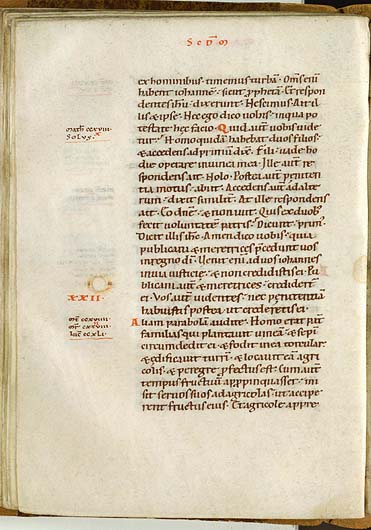 Scdm
ex hominibus · timemus turbā · Om̄s enī
habent iohannē · sicut ꝓphetā · Et respon
dentes ihū · dixerunt · Nescimus · Ait il
lis & ipse · Nec ego dico vobis · in qua po
testate hęc facio · Quid aut vobis vide
tur · Homo quidā habebat duos filios ·
& accedens ad primū dix · Fili · vade ho
die operare in vinea mea · Ille aut re
spondens ait · Nolo · Postea aut pęnitentia
motus · abiit · Accedens aut ad alte
rum · dixit similit · At ille respondens
ait · Eo dn̄e · & non ivit · Quis ex duob;
fecit voluntatē patris · Dicunt · prim
Dicit illis ihc · Amen dico vobis · quia
publicani & meretrices p̄cedent vos
in regno dī · Venit enī ad vos iohannes
in via iusticię · & non credidistis ei ·
Publicani aut & meretrices · credidert
ei · Vos aut videntes · nec pęnitentiā
habuistis postea · ut crederetis ei ·
Aliam parabolā audite · Homo erat pat
familias qui plantavit vineā · & sepē
circumdedit ei · & fodit in ea torcular
& edificavit turrī · & locavit eā agri
colis · & peregre ꝓfectus est · Cum aut
tempus fructuū appropinquasset · mi
sit servos suos ad agricolas · ut accipe
rent fructus eius · Et agricole appre
math ccxviii ·
Solus · x
XXII ·
mr cxxviii ·
luc ccxli ·